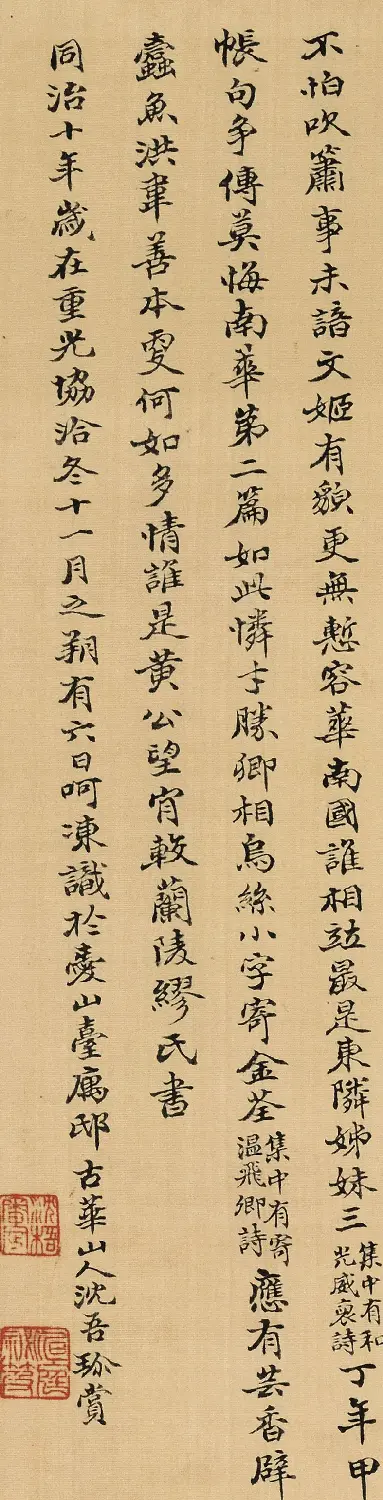 不怕吹簫事未諳文姬有貌更無慙容華南國誰相竝最是東隣姊妹三集中有和光威裒詩丁年甲
帳句爭傳莫悔南華第二篇如此憐才勝卿相烏絲小字寄金荃集中有寄溫飛卿詩應有芸香辟
蠹魚洪韋善本夐何如多情誰是黃公望肯較蘭陵繆氏書
同治十年歲在重光協洽冬十一月之朔有六日呵凍識於愛山臺庽邸古華山人沈吾珍賞
沈梧審定